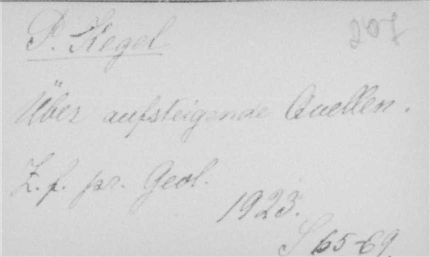 P. Kegel
207
Über aufsteigende Quellen.
Z. f. pr. Geol.
1923.
S 65-69.